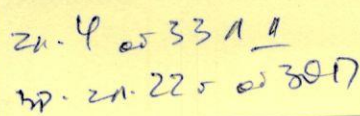 чл. 4 от ЗЗЛД
вр. чл. 22 б от ЗОП